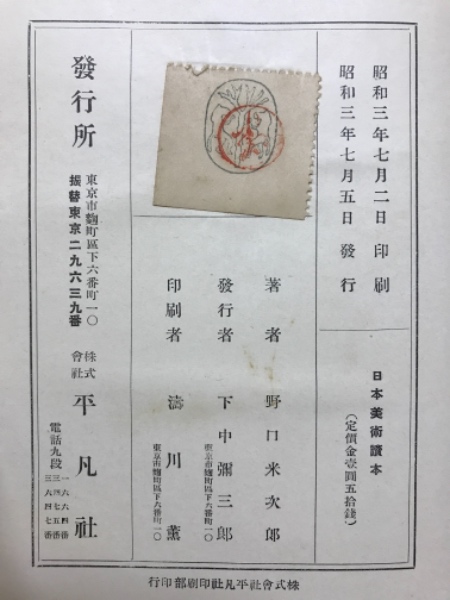 昭和三年七月二日印刷
昭和三年七月五日發行
日本美術讀本
(定價金壹圓五拾錢)
著者 野口米次郎
發行者 下中彌三郎
東京市麴町區下六番町一〇
印刷者 濤川薰
東京市麴町區下六番町一〇
發行所
東京市麴町區下六番町一〇
振替東京二九六三九番
株式會社 平凡社
電話九段
株式會社平凡社印刷部印行